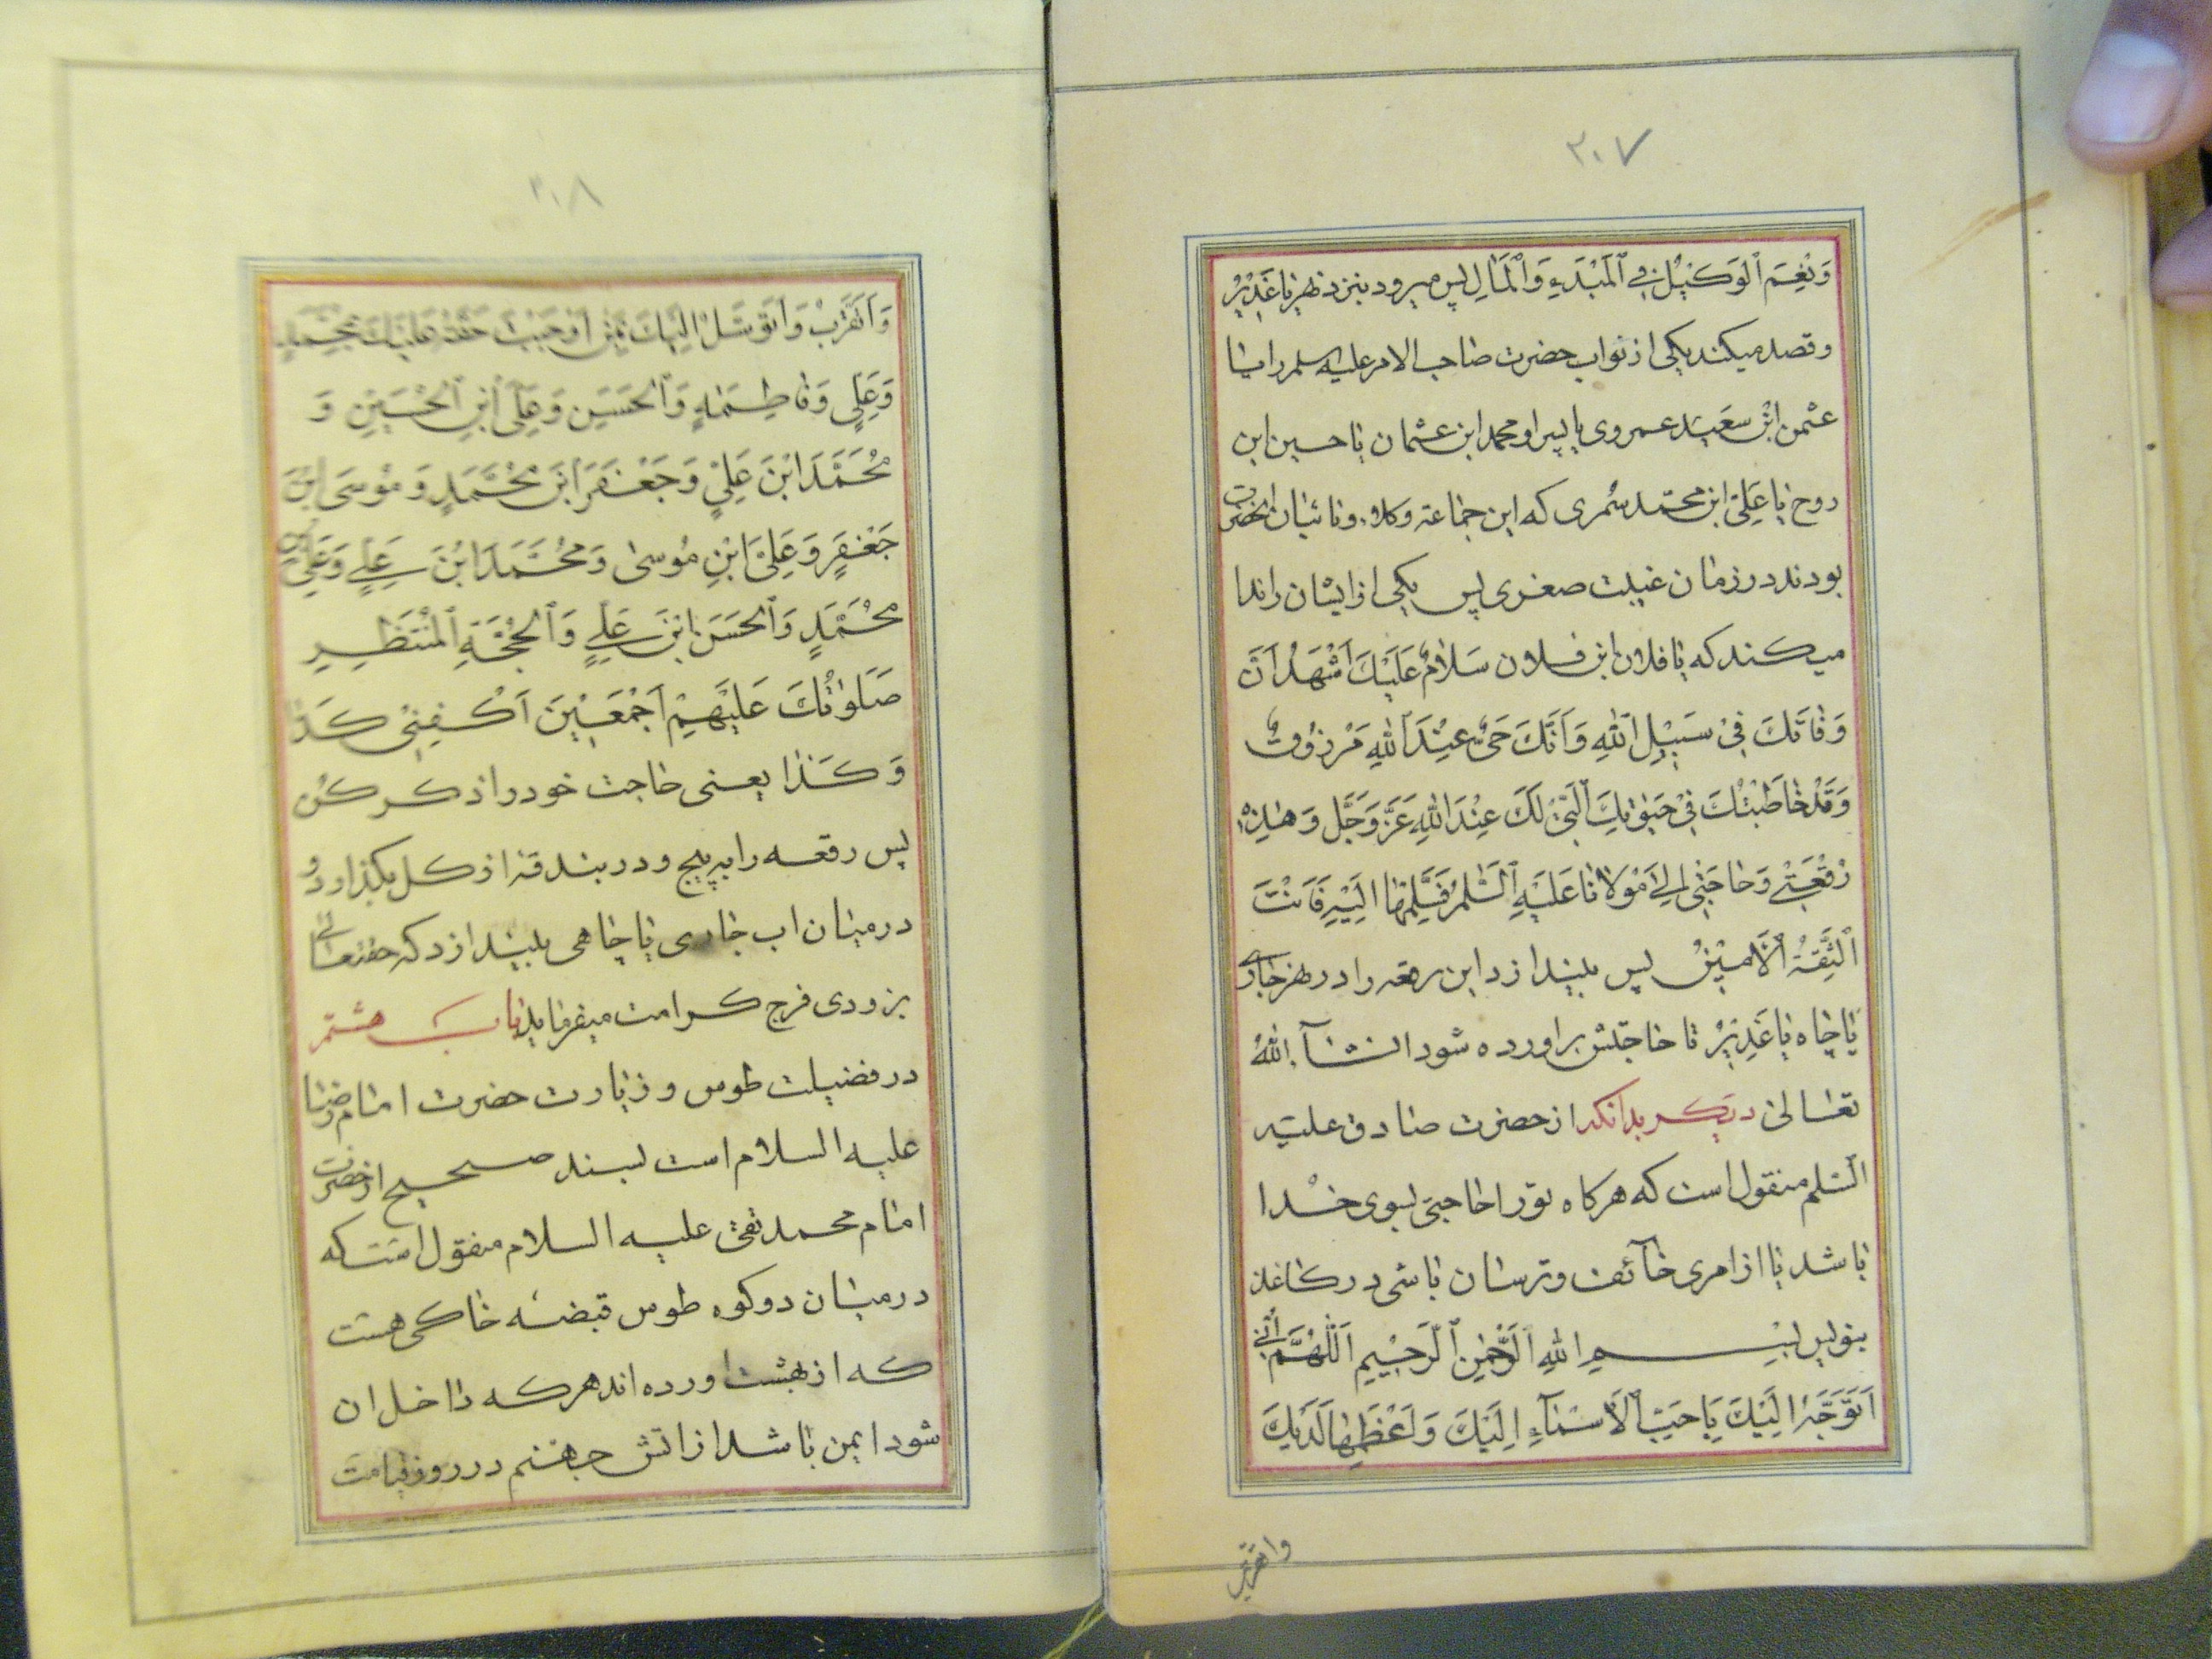 ٣٠٧
وَنِعْمَ ٱلوَكيٖلُ فِي ٱلمَبْدَءِ وَٱلْمَاٰلِ پس ميرود بنزد نهر يا غَديٖرُ
و قصد ميكند يكى از نواب حضرت صاحب الامر عليه السلم را يا
عثمن ابْن سَعيٖد عمروى يا پسر او محمد ابن عثمان يا حسين ابن
روح يا عَلِى ابن محمّد سمُرى كه اين جماعة وكلاء و نائبان انحضرت
بودند در زمان غيبت صغرى پس يكى از ايشان را ندا
ميكند كه يا فلان ابن فلان سَلامٌ عَلَيْكَ اَشْهَدُ اَنَّ
وَفاتَكَ فيٖ سَبيٖلِ اللّٰهِ وَاَنَّكَ حَىٌّ عِنْدَ ٱللّٰهِ مَرْزوُقٌ
وَقَدْ خاطَبْتُكَ فيٖ حَيوٰتِكَ ٱلَّتيٖ لَكَ عِنْدَ اللّٰهِ عَزَّ وَجَلَّ وَهٰذِهٖ
رُقْعَتيٖ وَحاجَتيٖ اِليٰ مَوْلانا عَلَيْهِ ٱلسَّلٰمُ فَسَلِّمْهٰا اِلَيْهِ فَاَنْتَ
ٱلثِّقَةُ ٱلْاَميٖنُ پس بيندازد اين رقعه را در نهر جارى
يا چاه يا غَديٖرُ تا حاجتش براورده شود انشآء اللّٰهُ
تعالىٰ ديكر بدانكه از حضرت صادق عليه
السّلم منقول است كه هركاه تو را حاجتى بسوى خدا
باشد يا از امرى خآئف و ترسان باشى در كاغذ
بنويس بِسْمِ اللّٰهِ ٱلرَّحْمٰنِ ٱلرَّحيٖمِ اَللّٰهُمَّ اِنّيٖ
اَتَوَجَّهُ اِلَيْكَ يٰا حَبَّ ٱلْاَسْمآءِ اِلَيْكَ وَاَعْظَمِهٰا لَدَيْكَ
واتقرب
٣٠٨
وَاَتَقَرَّبُ وَاَتَوَسَّلُ اِلَيْكَ بِمَنْ اَوْجَبْتَ حَقَّهُ عَلَيْكَ بِمُحَمَّدٍ
وَعَلِيٍ وَفاطِمَةٍ وَٱلحَسَنِ وَعَلِيِّ ٱبْنِ ٱلحُسَيْنِ وَ
مُحَمَّدَ ابْنَ عَلِيٍ وَجَعْفَرَ ابْنَ مُحَمَّدٍ وَمُوْسَى ابْنَ
جَعْفَرٍ وَعَلِيِّ ابْنِ مُوسىٰ وَمُحَمَّدَ ابْنَ عَلِيٍ وَعَلِيِّ ابْنِ
مُحَمَّدٍ وَٱلحَسَنَ ابْنَ عَلِيٍ وَٱلْحُجَّةِ ٱلْمُنْتَظَرِ
صَلَوٰتُكَ عَلَيْهِمْ اَجْمَعيٖنَ اَكْفِنيٖ كَذٰا
وَكَذٰا يعنى حاجت خود را ذكر كن
پس رقعه را بپيچ و در بندقه از كل بكذار و
در ميان اب جارى يا چاهى بيندازد كه حقتعالى
بزودى فرج كرامت ميفرمايد باب هشتم
در فضيلت طوس و زيارت حضرت امام رضا
عليه السلام است بسند صحيح از حضرت
امام محمد تقى عليه السلام منقول است كه
در ميان دو كوه طوس قبضهٔ خاكى هست
كه از بهشت اورده اند هركه داخل ان
شود ايمن باشد از اتش جهنم در روز قيامت